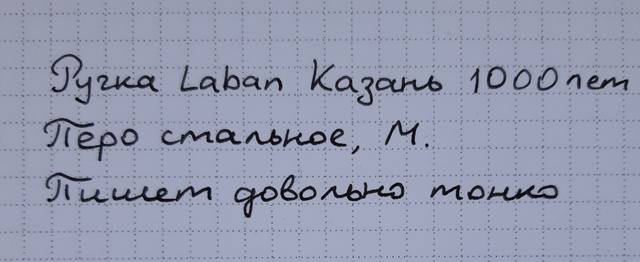 Ручка Laban Казань 1000 лет
Перо стальное, М.
Пишет довольно тонко